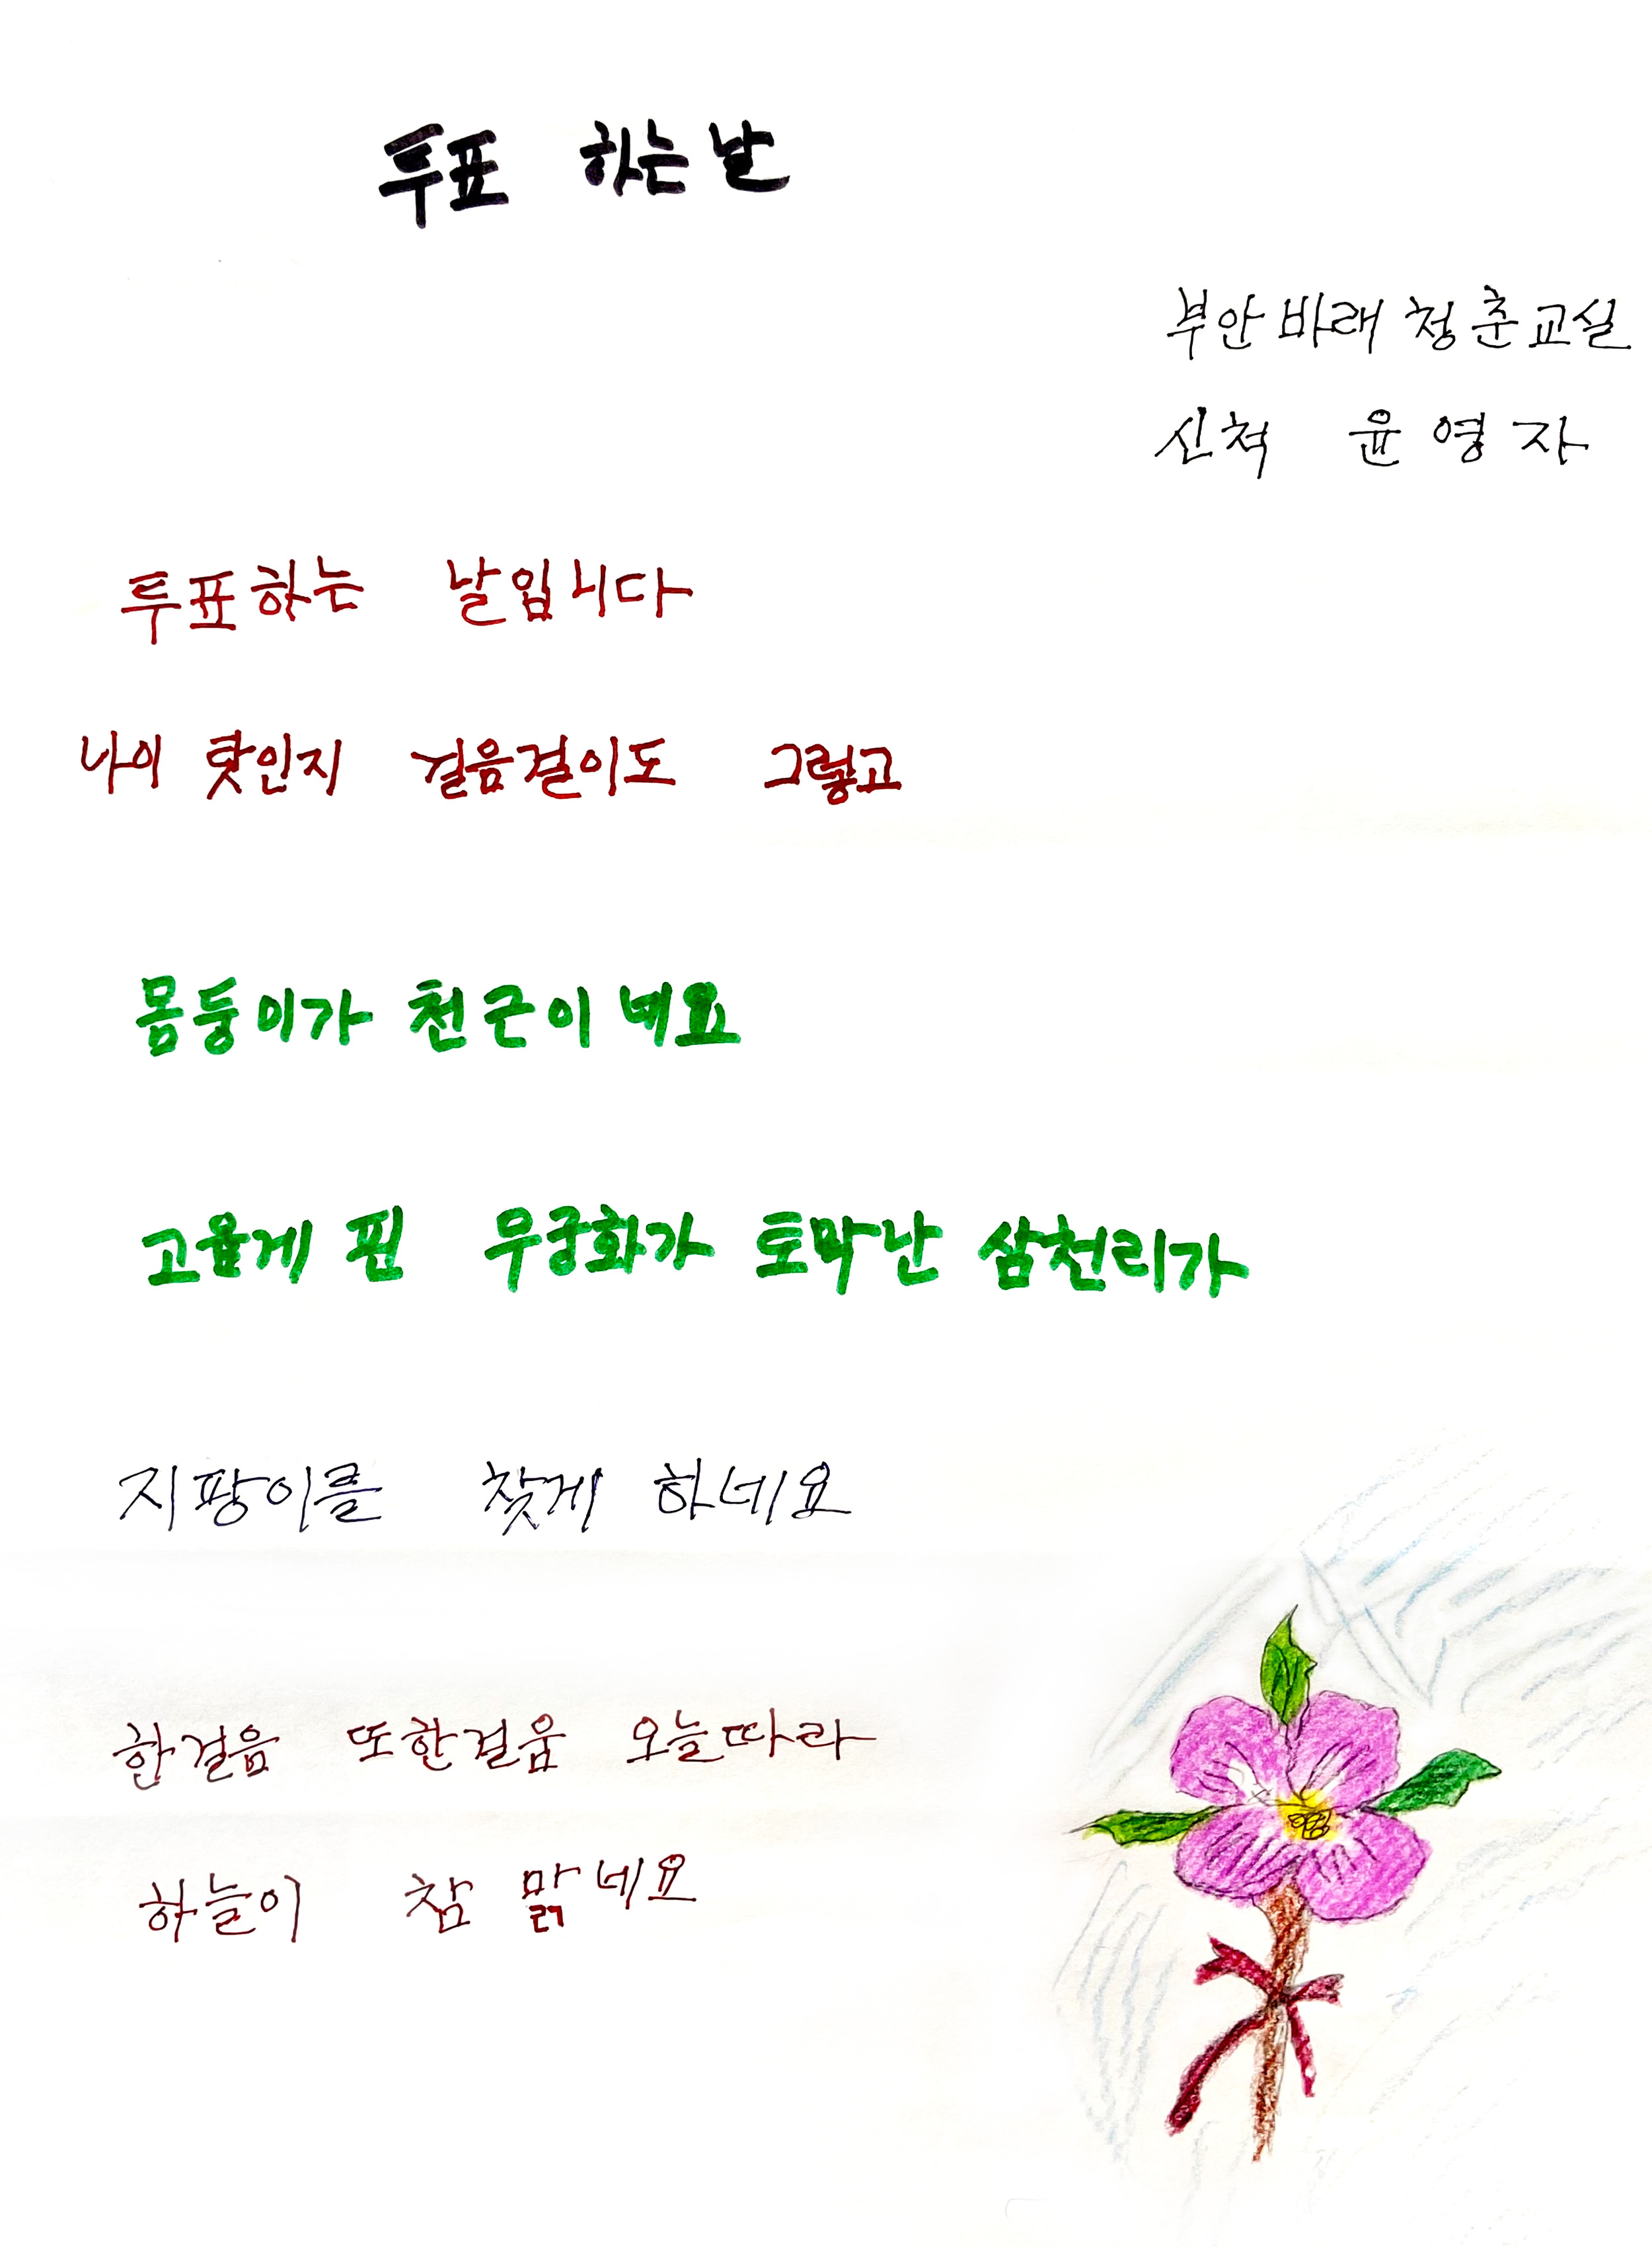 투표 하는 날
부안 바래 청춘교실
신척 윤영자
투표하는 날입니다
나이 탓인지 걸음걸이도 그렇고
몸둥이가 천근이네요
고읍게 핀 무궁화가 토막난 삼천리가
지팡이를 찾게 하네요
한걸음 또한걸움 오늘따라
하늘이 참 맑네요